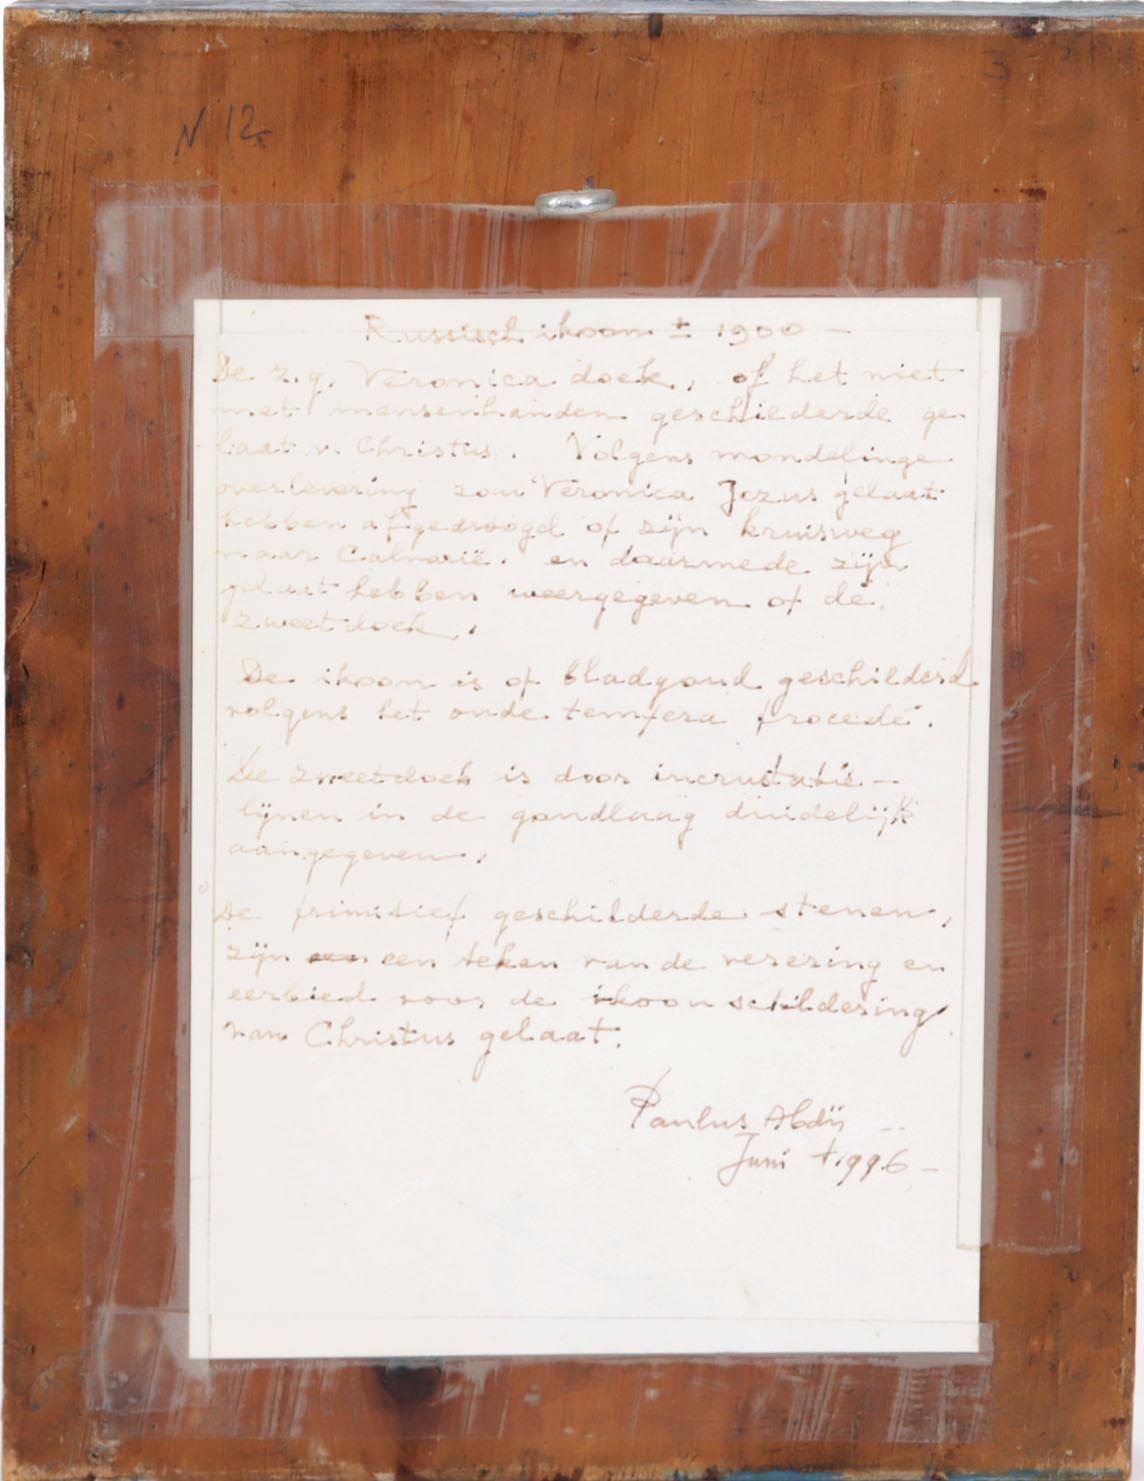 N 12
Russisch ikoon ± 1900 -
De z.g. Veronica doek, of het niet
met mensenhanden geschilderde ge-
laat v. Christus. Volgens mondelinge
overlevering zou Veronica Jezus gelaat
hebben afgedroogd op zijn kruisweg
naar Calvarië. en daarmede zijn
gelaat hebben weergegeven op de
zweetdoek.
De ikoon is op bladgoud geschilderd
volgens het oude tempera procedé.
De zweetdoek is door incrustatie-
lijnen in de goudlaag duidelijk
aangegeven.
De primitief geschilderde stenen,
zijn een teken van de verering en
eerbied voor de ikoon schildering
van Christus gelaat.
Paulus Abdij
Juni 1996-